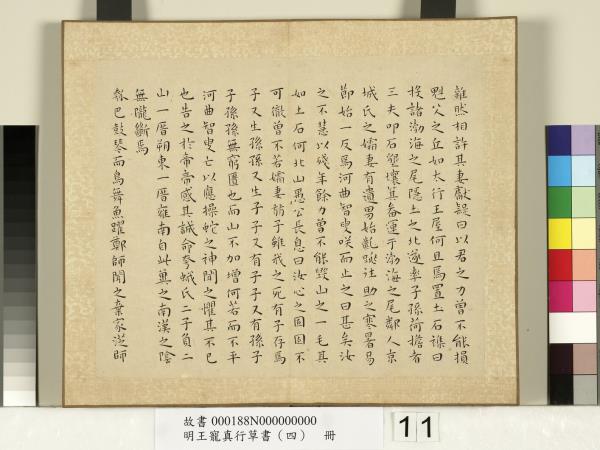 雜然相許其妻獻疑曰以君之力曾不能損
魁父之丘如大行王屋何且焉置土石雜曰
投諸渤海之尾隱土之北遂率子孫荷擔者
三夫叩石墾壤箕畚運于渤海之尾鄰人京
城氏之孀妻有遺男始齔跳往助之寒暑易
節始一反焉河曲智叟咲而止之曰甚矣汝
之不慧以殘年餘力曾不能毀山之一毛其
如土石何北山愚公長息曰汝心之固固不
可徹曾不若孀妻弱子雖我之死有子存焉
子又生孫孫又生子子又有子子又有孫子
子孫孫無窮匱也而山不加增何若而不平
河曲智叟亡以應操蛇之神聞之懼其不已
也告之於帝帝感其誠命夸蛾氏二子負二
山一厝朔東一厝雍南自此冀之南漢之陰
無隴斷焉
瓠巴鼓琴而鳥舞魚躍鄭師聞之棄家從師
故書 000188N000000000
明王寵真行草書（四） 冊
11